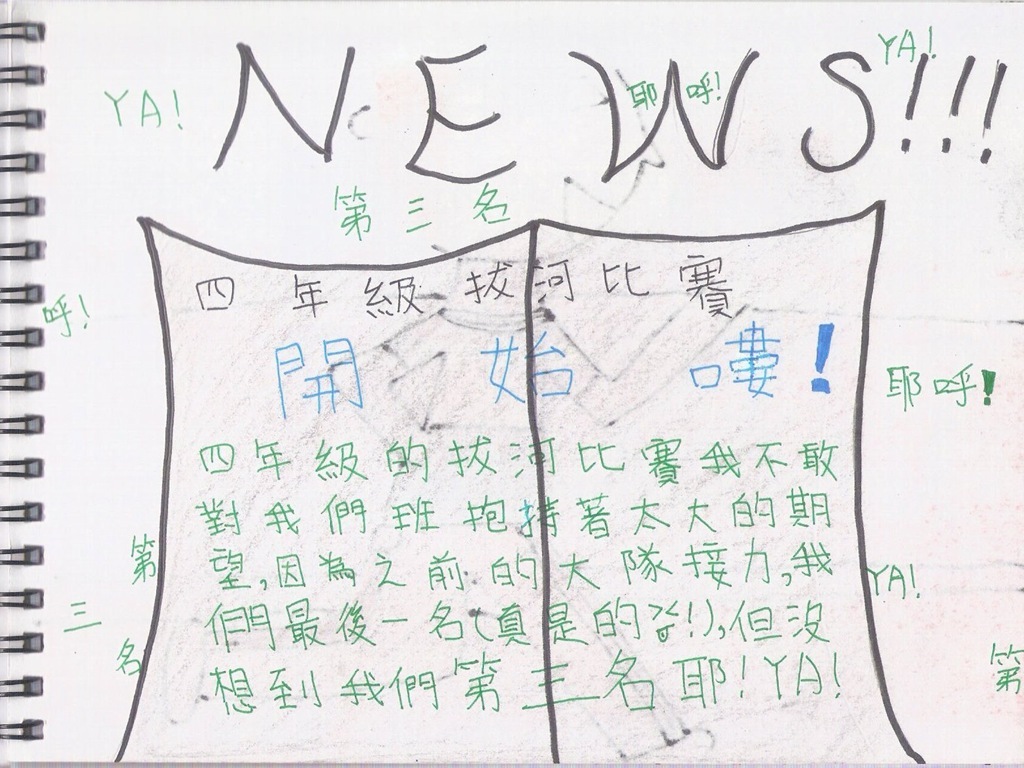 NEWS!!!
YA!
YA!
耶呼!
第三名
呼!
四年級拔河比賽
開始嘍!
耶呼!
四年級的拔河比賽我不敢
對我們班抱持著太大的期
望,因為之前的大隊接力,我
們最後一名(真是的!),但沒
想到我們第三名耶!YA!
第三名
YA!
第